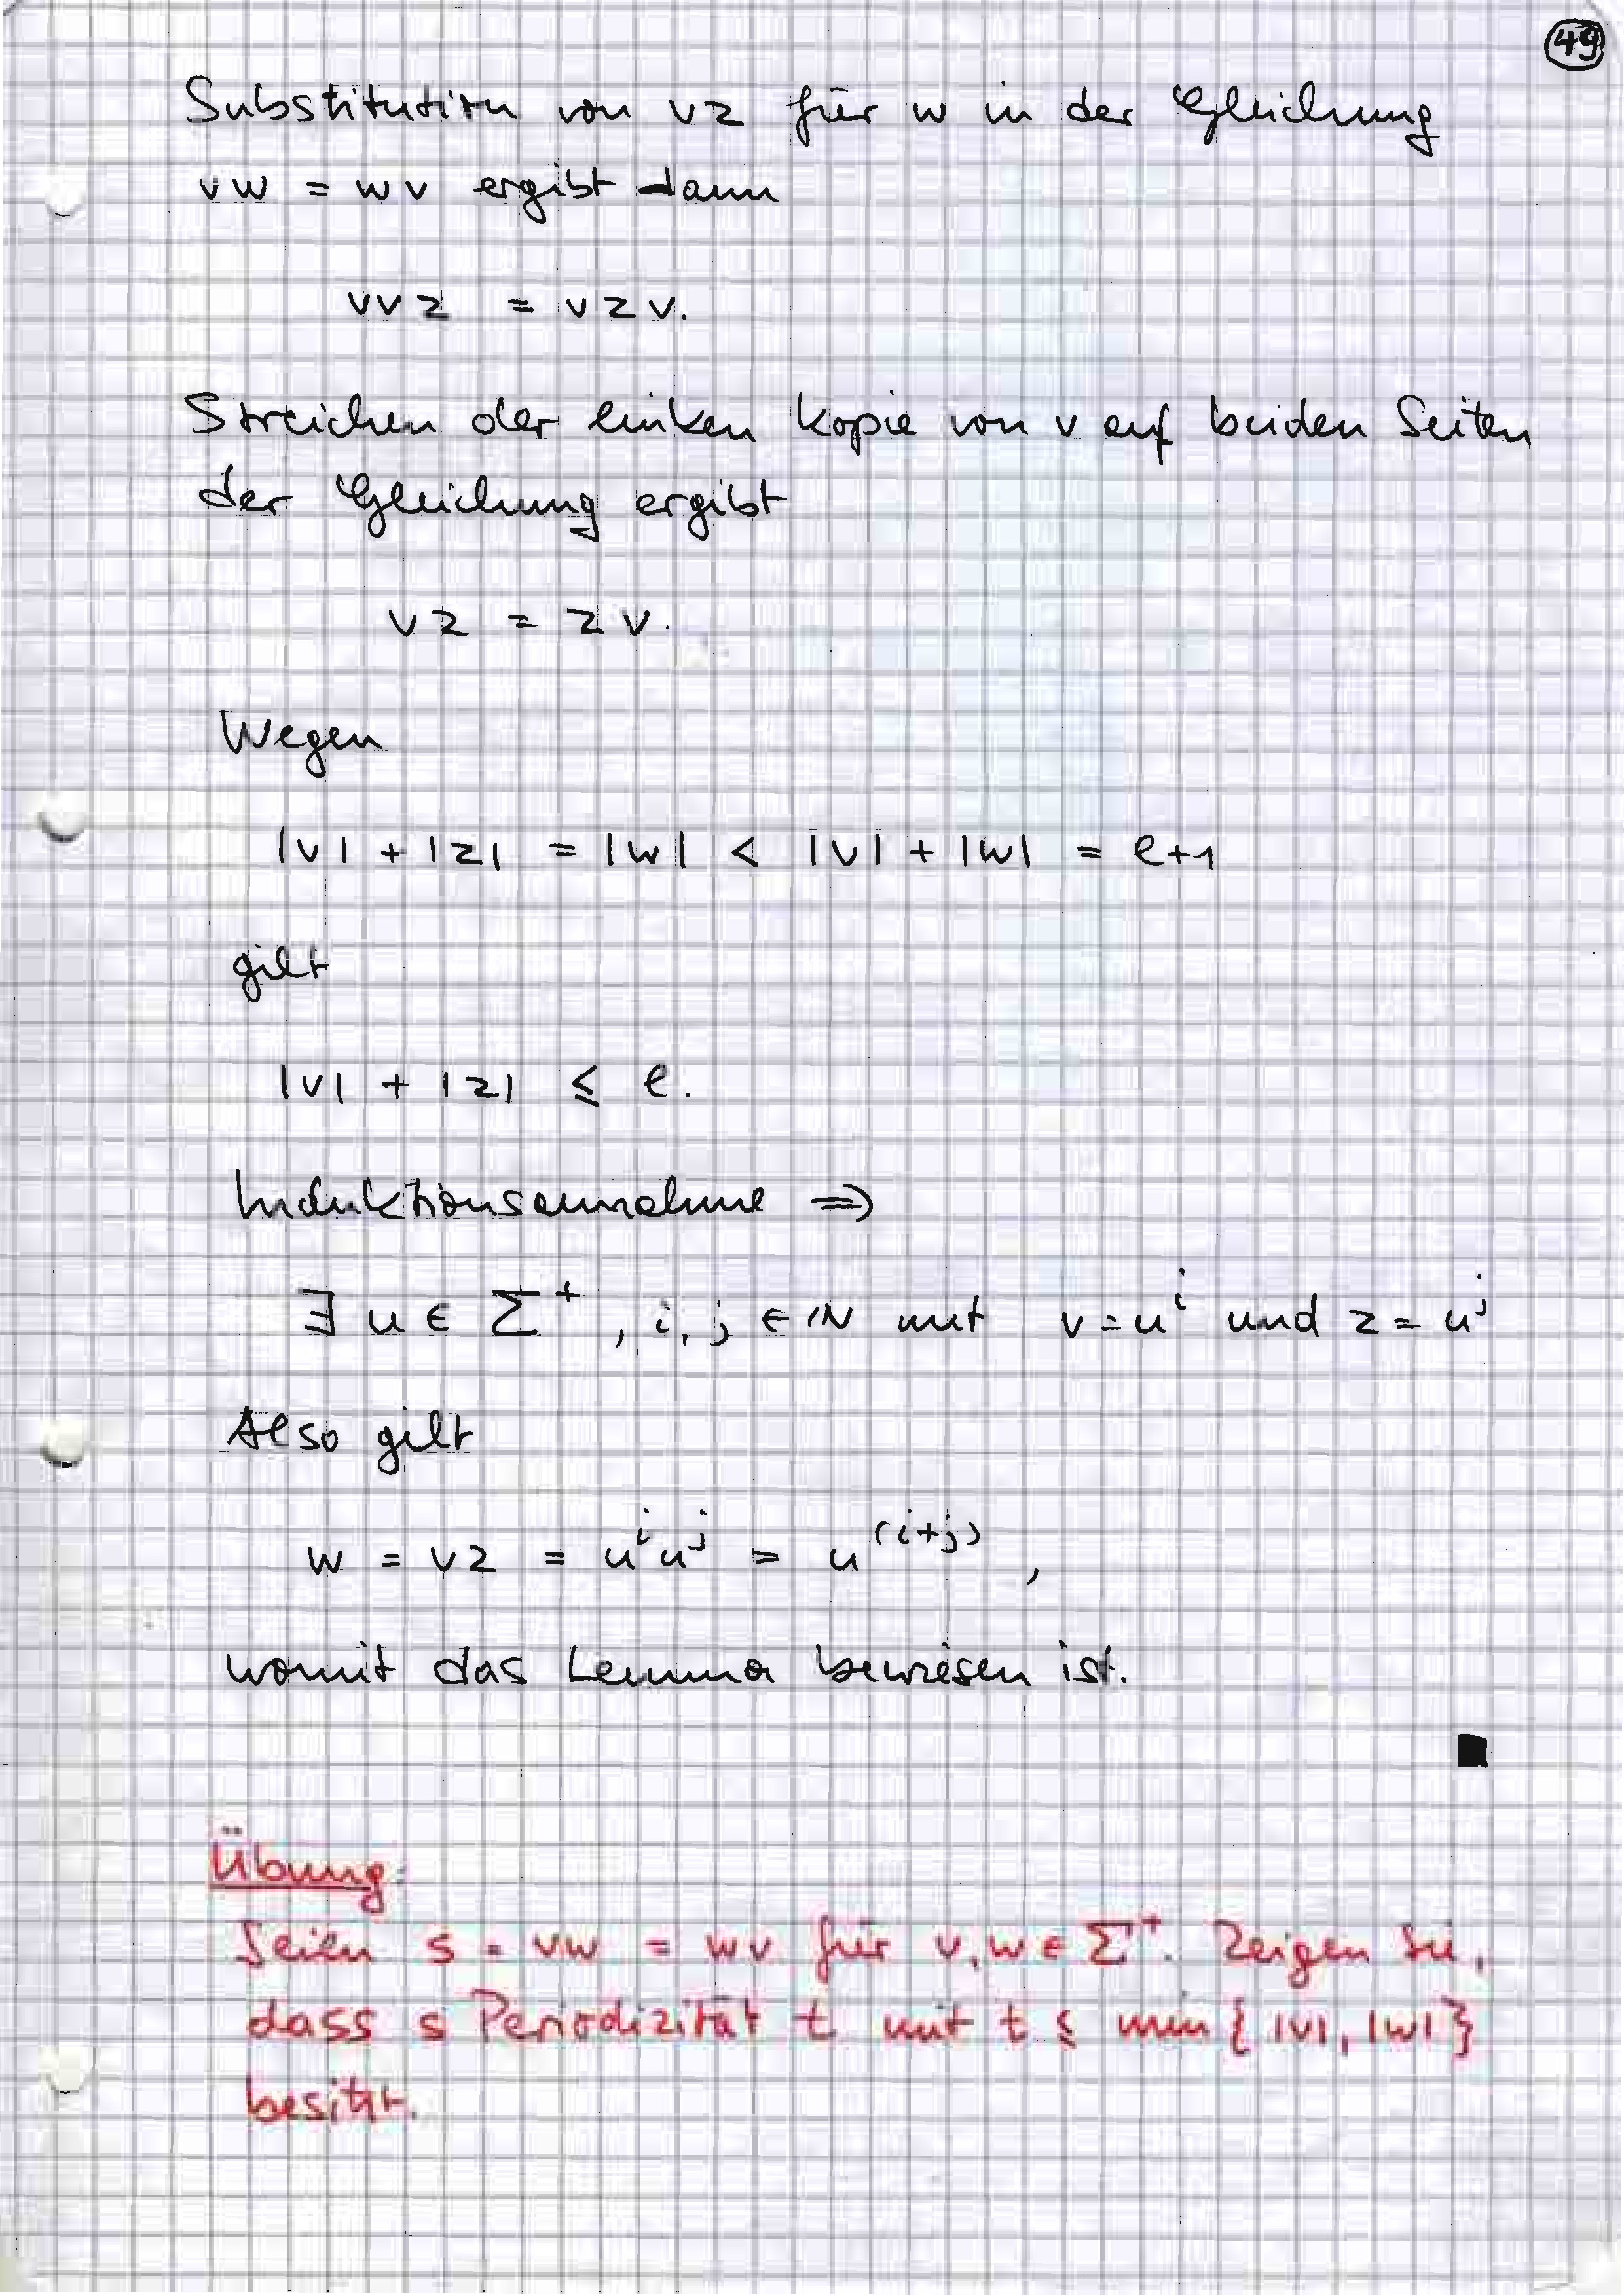 49
Substitution von vz für w in der Gleichung
vw = wv ergibt dann
vvz = vzv.
Streichen der linken Kopie von v auf beiden Seiten
der Gleichung ergibt
vz = zv.
Wegen
|v| + |z| = |w| < |v| + |w| = ℓ+1
gilt
|v| + |z| ≤ ℓ.
Induktionsannahme ⇒
∃ u ∈ Σ⁺, i, j ∈ ℕ mit v = uⁱ und z = uʲ
Also gilt
w = vz = uⁱuʲ = u⁽ⁱ⁺ʲ⁾,
womit das Lemma bewiesen ist.
Übung:
Seien s = vw = wv für v, w ∈ Σ⁺. Zeigen Sie,
dass s Periodizität t mit t ≤ min { |v|, |w| }
besitzt.